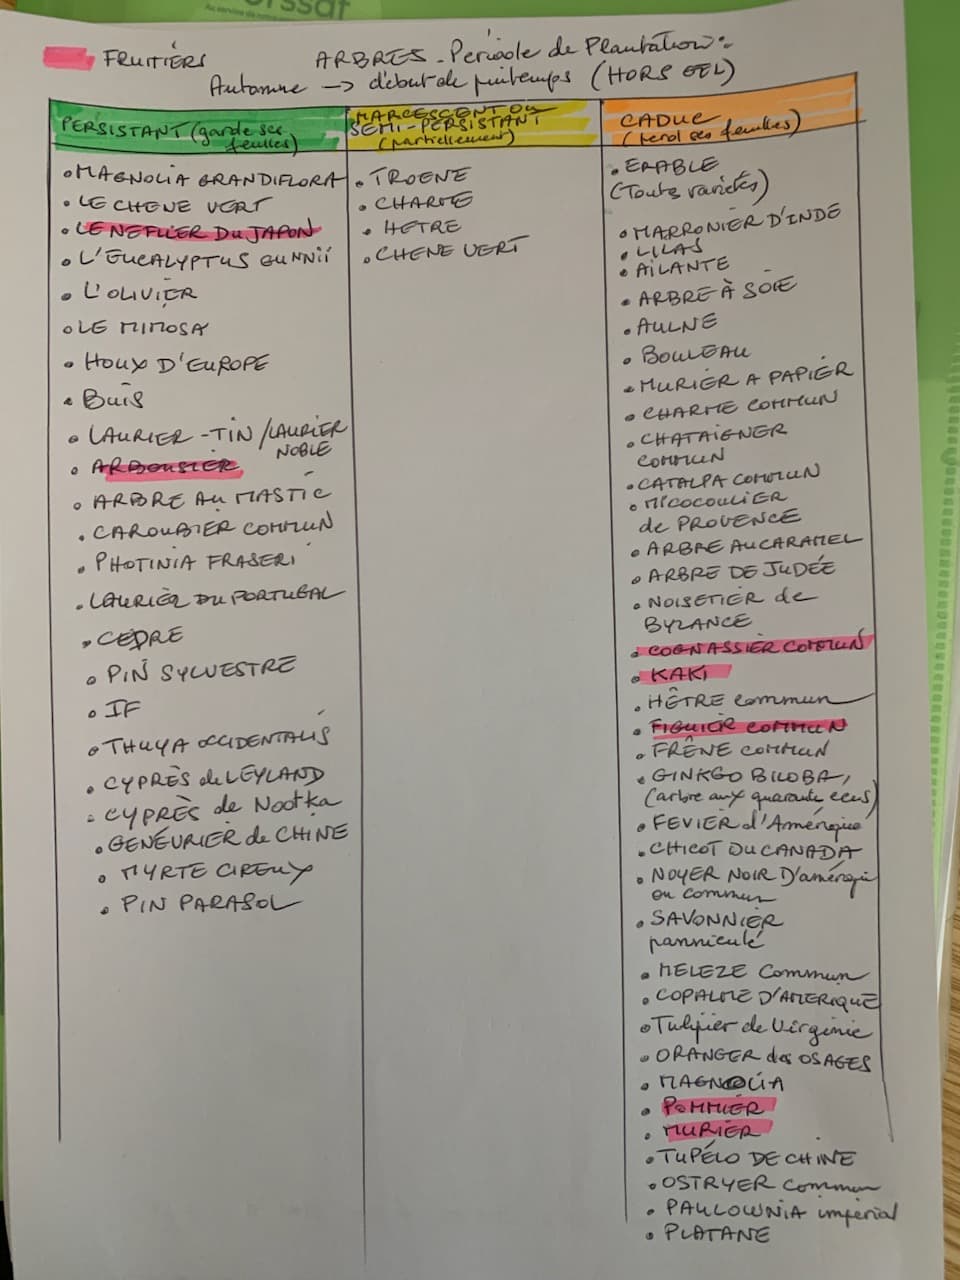 FRUITIÉRS
ARBRES - Période de Plantation:
Automne -> début de printemps (HORS GEL)
PERSISTANT (garde ses
feuilles)
• MAGNOLIA GRANDIFLORA
• LE CHENE VERT
• LE NEFLIER DU JAPON
• L'EUCALYPTUS GUNNII
• L'OLIVIER
• LE MIMOSA
• HOUX D'EUROPE
• BUIS
• LAURIER-TIN / LAURIER
NOBLE
• ARBOUSIER
• ARBRE AU MASTIC
• CAROUBIER COMMUN
• PHOTINIA FRASERI
• LAURIER DU PORTUGAL
• CEDRE
• PIN SYLVESTRE
• IF
• THUYA OCCIDENTALIS
• CYPRÈS de LEYLAND
• CYPRÈS de Nootka
• GENÉURIER de CHINE
• MYRTE CIREUX
• PIN PARASOL
MARCESCENT OU
SEMI-PERSISTANT
(partiellement)
• TROENE
• CHARME
• HETRE
• CHENE VERT
CADUC
(perd ses feuilles)
• ERABLE
(Toutes variétés)
• MARRONIER D'INDE
• LILAS
• AILANTE
• ARBRE À SOIE
• AULNE
• BOULEAU
• MURIER A PAPIER
• CHARME COMMUN
• CHATAIGNER
COMMUN
• CATALPA COMMUN
• MICOCOULIER
de PROVENCE
• ARBRE AU CARAMEL
• ARBRE DE JUDÉE
• NOISETIER de
BYZANCE
• COGNASSIER COMMUN
• KAKI
• HÊTRE commun
• FIGUIER COMMUN
• FRÊNE COMMUN
• GINKGO BILOBA,
(arbre aux quarante ecus)
• FEVIER d'Amérique
• CHICOT DU CANADA
• NOYER NOIR D'amériqu
ou commun
• SAVONNIER
panniculé
• MELEZE Commun
• COPALME D'AMERIQUE
• Tulipier de Virginie
• ORANGER des OSAGES
• MAGNOLIA
• POMMIER
• MURIER
• TUPÉLO DE CHINE
• OSTRYER commun
• PAULOWNIA impérial
• PLATANE